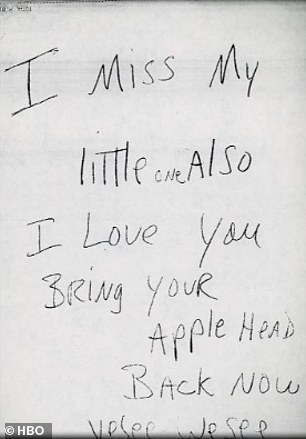 I Miss My
little one Also
I Love You
Bring YOUR
Apple Head
Back Now
© HBO